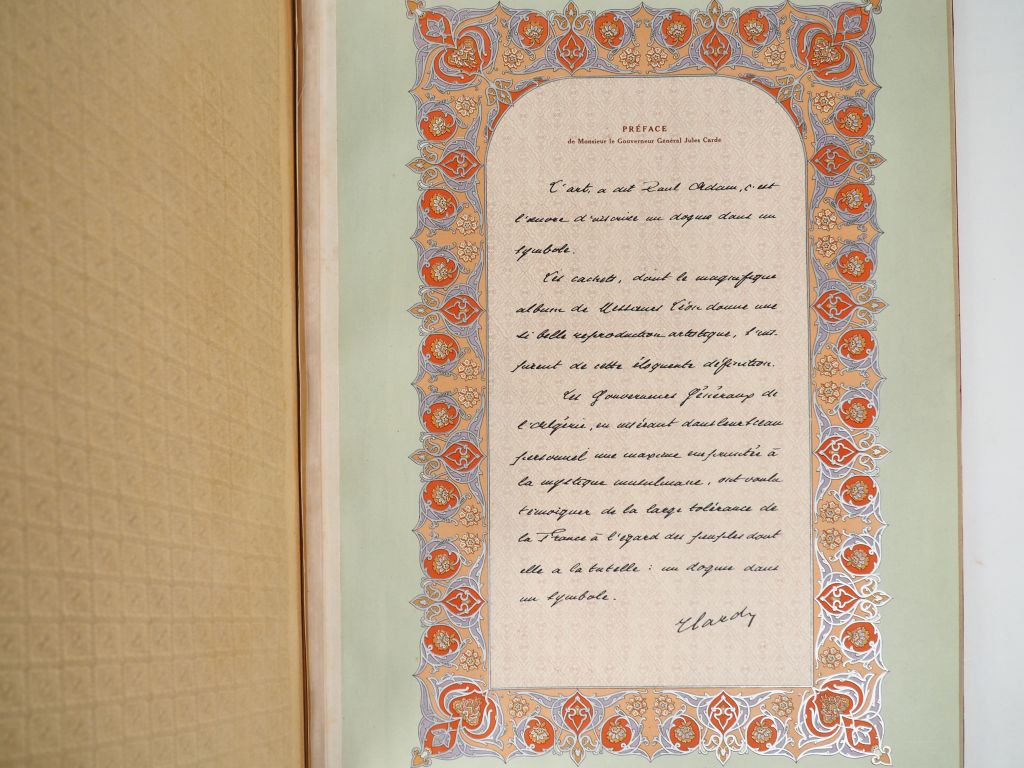 PRÉFACE
de Monsieur le Gouverneur Général Jules Carde
L'art, a dit Paul Adam, c'est
l'œuvre d'inscrire un dogme dans un
symbole.
Les cachets, dont le magnifique
album de Messieurs Léon donne une
si belle reproduction artistique, s'ins-
pirent de cette éloquente définition.
Les Gouverneurs Généraux de
l'Algérie, en insérant dans leur sceau
personnel une maxime empruntée à
la mystique musulmane, ont voulu
témoigner de la large tolérance de
la France à l'égard des peuples dont
elle a la tutelle : un dogme dans
un symbole.